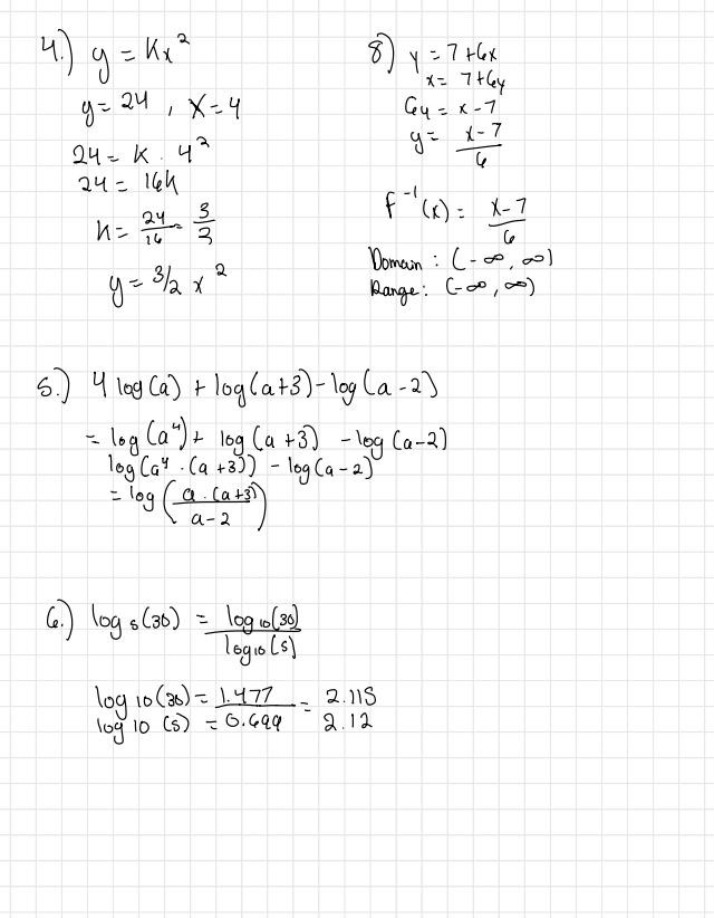 4.) y = Kx²
y = 24 , x = 4
24 = K · 4²
24 = 16K
K = 24/16 = 3/2
y = 3/2 x²
8) y = 7 + 6x
x = 7 + 6y
6y = x - 7
y = (x - 7)/6
f⁻¹(x) = (x - 7)/6
Domain : (-∞, ∞)
Range : (-∞, ∞)
5.) 4 log(a) + log(a+3) - log(a - 2)
= log(a⁴) + log(a + 3) - log(a - 2)
log(a⁴ · (a + 3)) - log(a - 2)
= log((a · (a+3))/(a - 2))
6.) log₅(30) = log₁₀(30)/log₁₀(5)
log 10 (30) = 1.477 = 2.115
log 10 (5) = 0.699 2.12